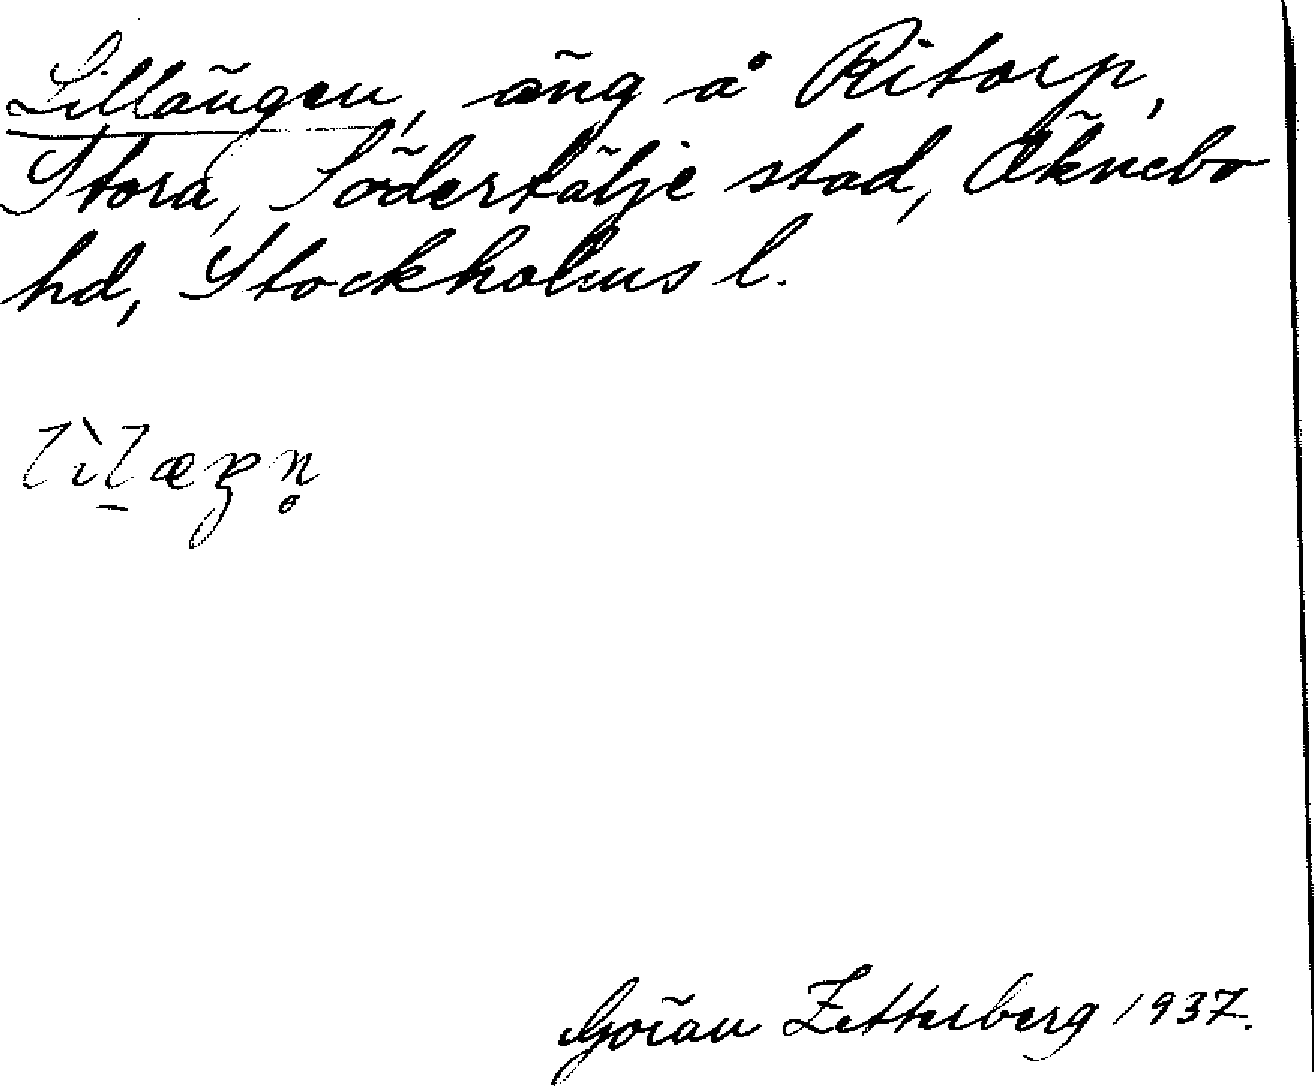 Lillängen, äng å Ritorp,
Stora, Södertälje stad, Öknebo
hd, Stockholms l.
lìl̠æŋn̥
Göran Zetterberg 1937.